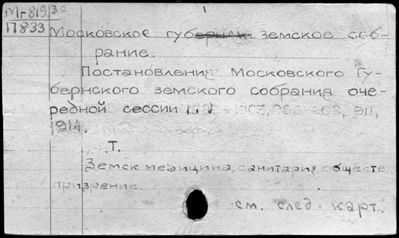 Мг819
П833
Московское губ земское соб-
рание.
Постановления Московского гу-
бернского земского собрания оче-
редной сессии
1914.
Т.
Земск. медицина, санитария, обществ.
призрение.
см. след. карт.